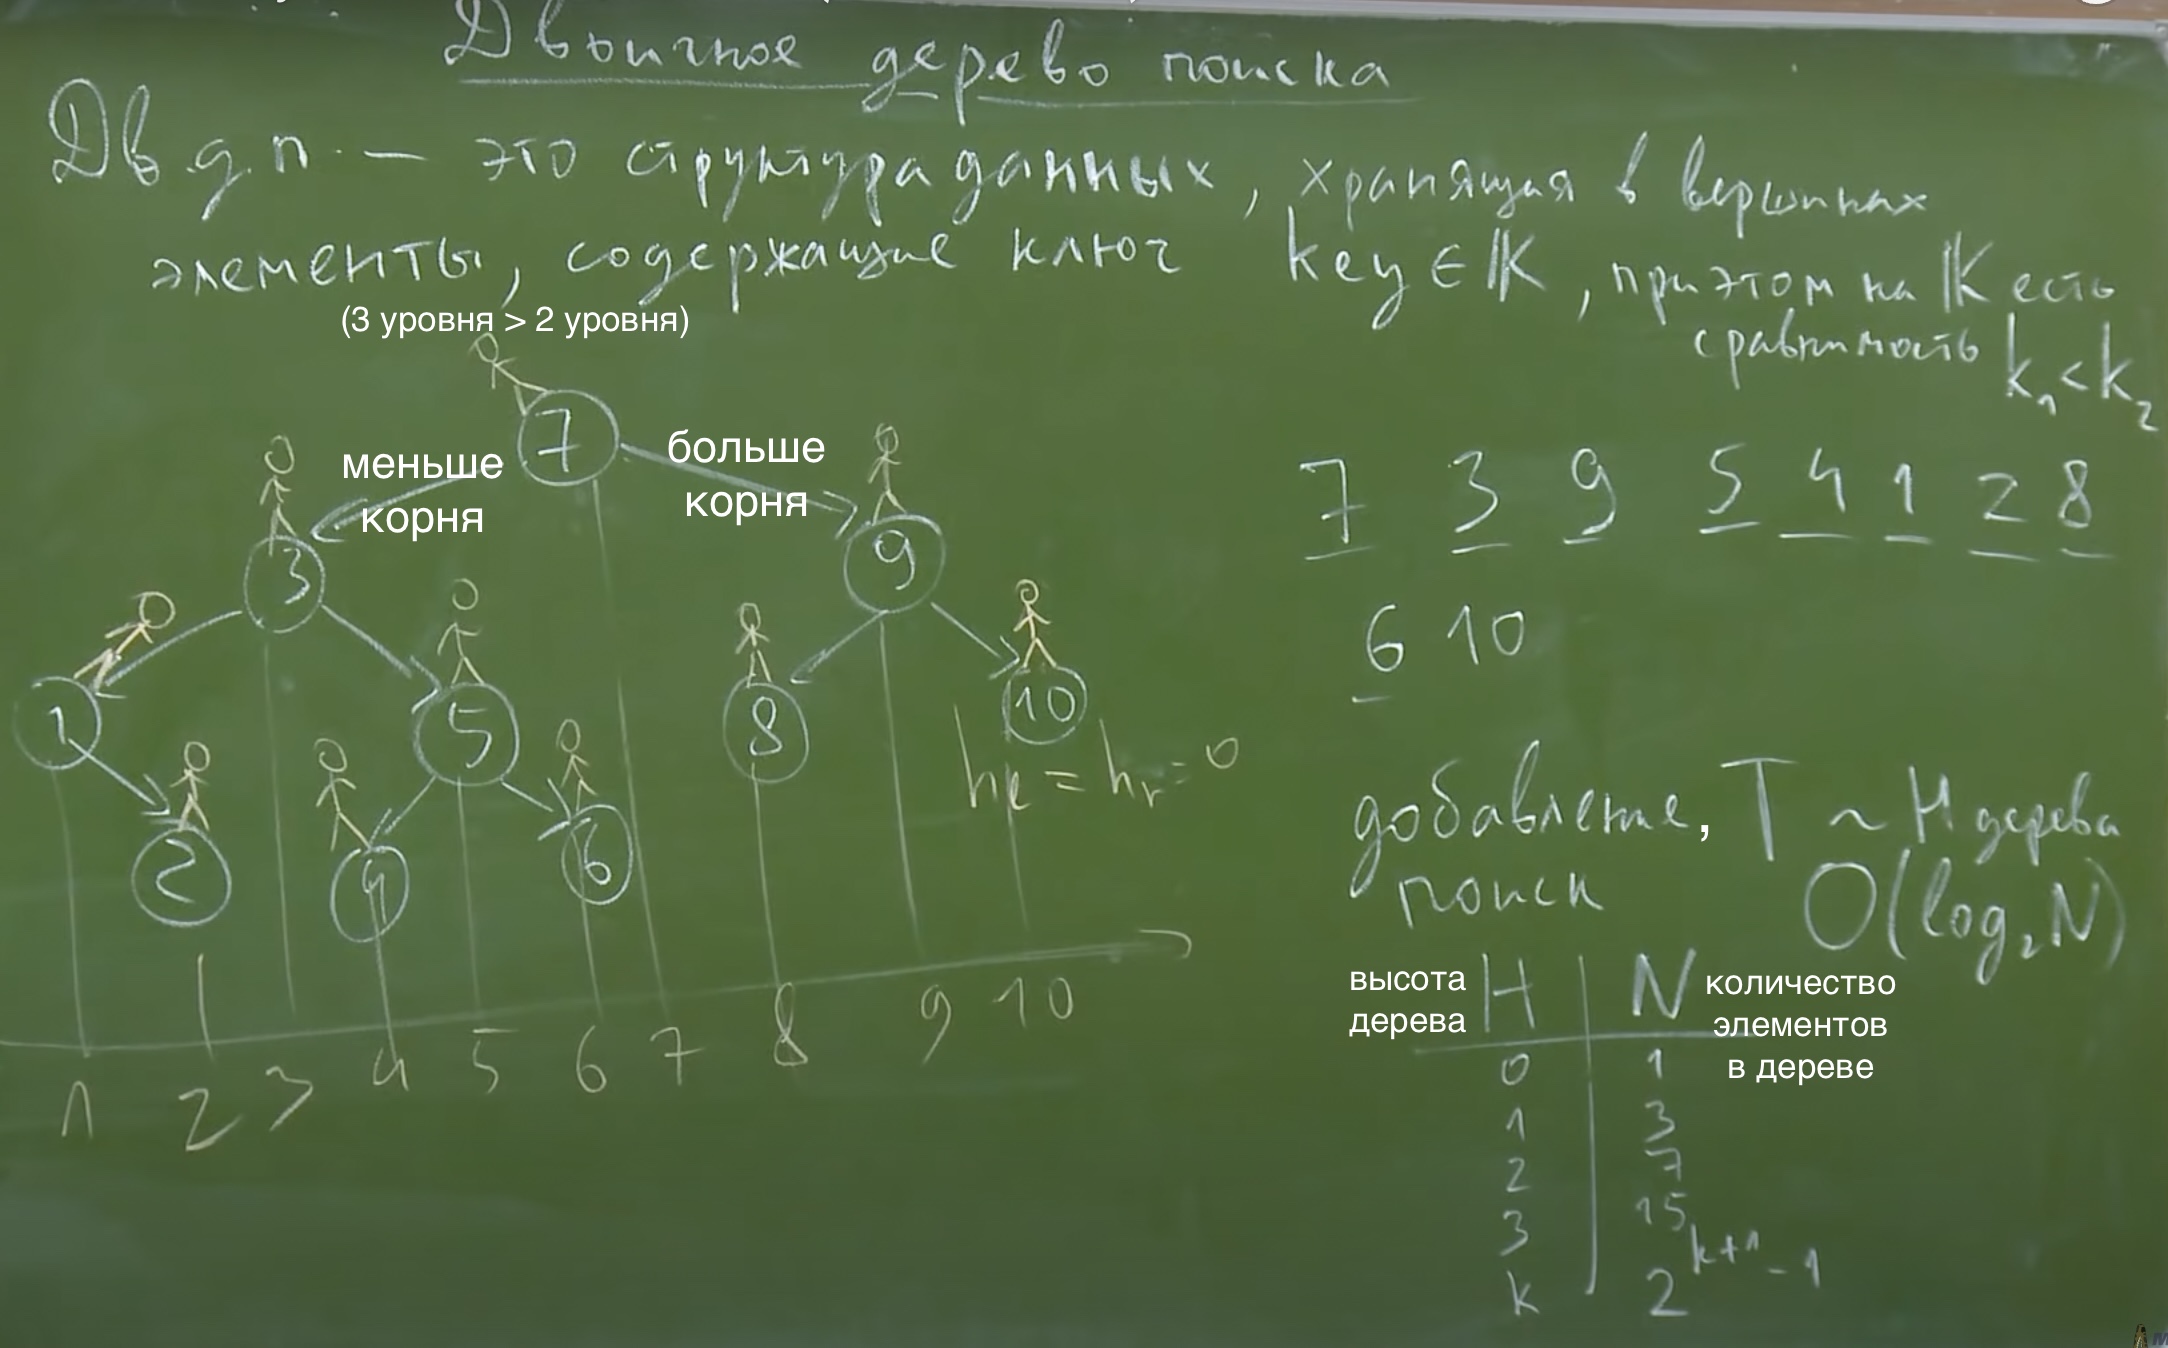 Двоичное дерево поиска
Дв.д.п. — это структура данных, хранящая в вершинах
элементы, содержащие ключ key ∈ 𝕂, при этом на 𝕂 есть
сравнимость k₁ < k₂
(3 уровня > 2 уровня)
7
меньше
корня
больше
корня
3
9
1
5
8
10
2
4
6
hℓ = hr = 0
1 2 3 4 5 6 7 8 9 10
7 3 9 5 4 1 2 8
6 10
добавление, T ~ H дерева
поиск O(log₂N)
высота
дерева
H N
количество
элементов
в дереве
0 1
1 3
2 7
3 15
k 2^(k+1) - 1